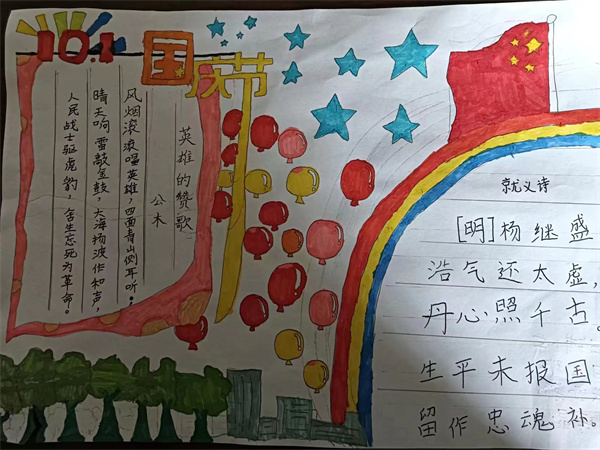 10.1
国庆节
英雄的赞歌
公木
风烟滚滚唱英雄,四面青山侧耳听。
晴天响雷敲金鼓,大海扬波作和声,
人民战士驱虎豹,舍生忘死为革命。
就义诗
[明]杨继盛
浩气还太虚,
丹心照千古。
生平未报国
留作忠魂补。